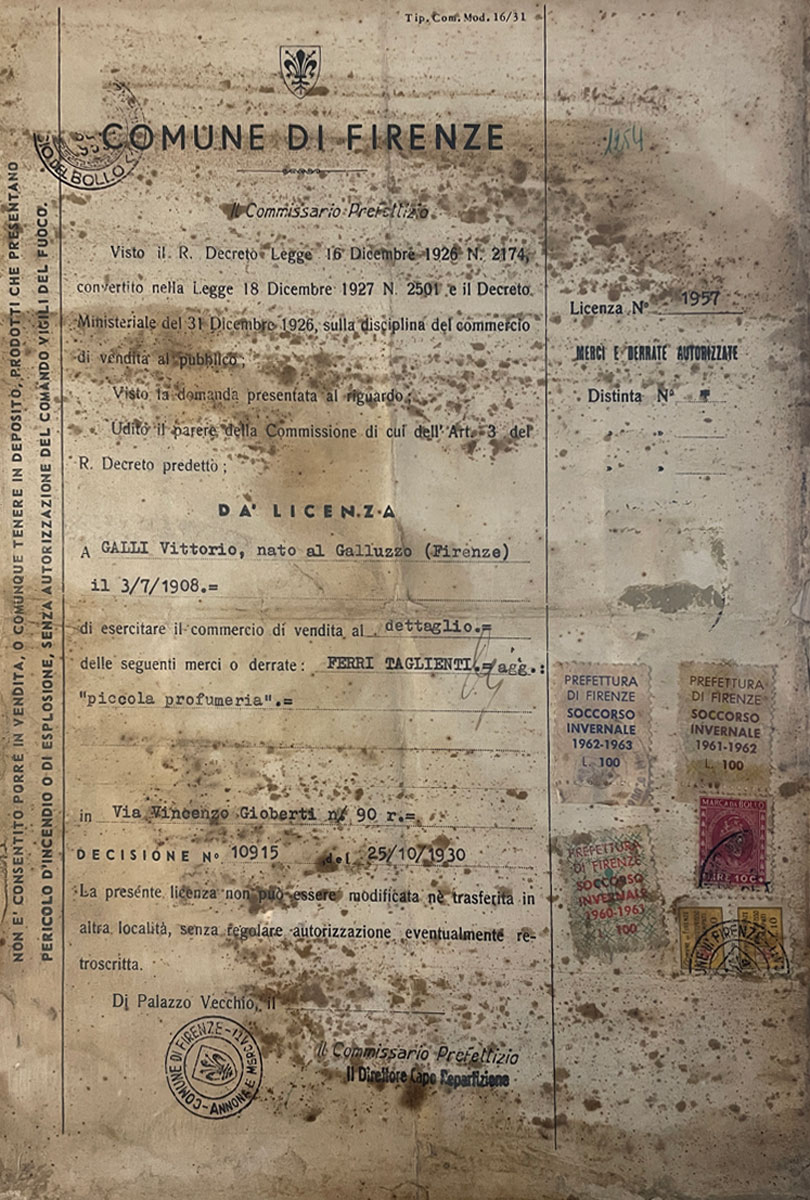 Tip. Com. Mod. 16/31
COMUNE DI FIRENZE
IO DEL BOLLO
Il Commissario Prefettizio
Visto il R. Decreto Legge 16 Dicembre 1926 N. 2174,
convertito nella Legge 18 Dicembre 1927 N. 2501 e il Decreto
Ministeriale del 31 Dicembre 1926, sulla disciplina del commercio
di vendita al pubblico;
Visto la domanda presentata al riguardo;
Udito il parere della Commissione di cui dell'Art. 3 del
R. Decreto predetto;
DA' LICENZA
A GALLI Vittorio, nato al Galluzzo (Firenze)
il 3/7/1908.=
di esercitare il commercio di vendita al dettaglio.=
delle seguenti merci o derrate: FERRI TAGLIENTI.=agg.:
"piccola profumeria".=
in Via Vincenzo Gioberti n/ 90 r.=
DECISIONE N° 10915 del 25/10/1930
La presente licenza non può essere modificata nè trasferita in
altra località, senza regolare autorizzazione eventualmente re-
troscritta.
Di Palazzo Vecchio, il
Il Commissario Prefettizio
Il Direttore Capo Ripartizione
COMUNE DI FIRENZE - ANNONA E MERCATI -
NON E' CONSENTITO PORRE IN VENDITA, O COMUNQUE TENERE IN DEPOSITO, PRODOTTI CHE PRESENTANO
PERICOLO D'INCENDIO O DI ESPLOSIONE, SENZA AUTORIZZAZIONE DEL COMANDO VIGILI DEL FUOCO.
1254
Licenza N° 1957
MERCI E DERRATE AUTORIZZATE
Distinta N°
" "
" "
PREFETTURA
DI FIRENZE
SOCCORSO
INVERNALE
1962-1963
L. 100
PREFETTURA
DI FIRENZE
SOCCORSO
INVERNALE
1961-1962
L. 100
MARCA DA BOLLO
LIRE 10
PREFETTURA
DI FIRENZE
SOCCORSO
INVERNALE
L. 100
UNE DI FIRENZE